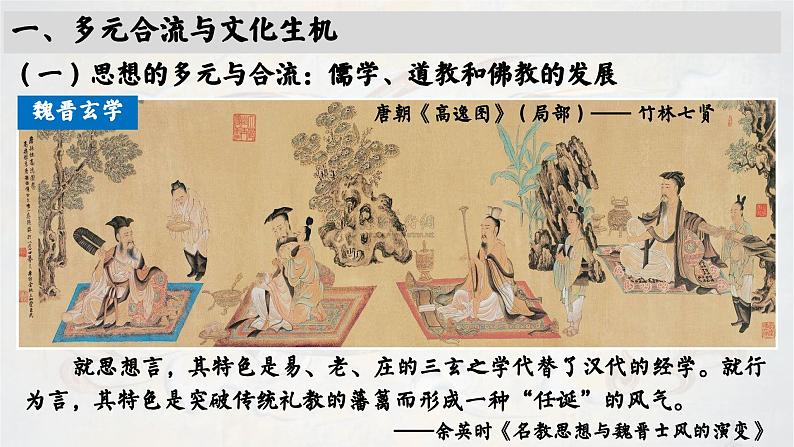 一、多元合流与文化生机
（一）思想的多元与合流：儒学、道教和佛教的发展
魏晋玄学
唐朝《高逸图》（局部）—— 竹林七贤
就思想言，其特色是易、老、庄的三玄之学代替了汉代的经学。就行
为言，其特色是突破传统礼教的藩篱而形成一种“任诞”的风气。
——余英时《名教思想与魏晋士风的演变》